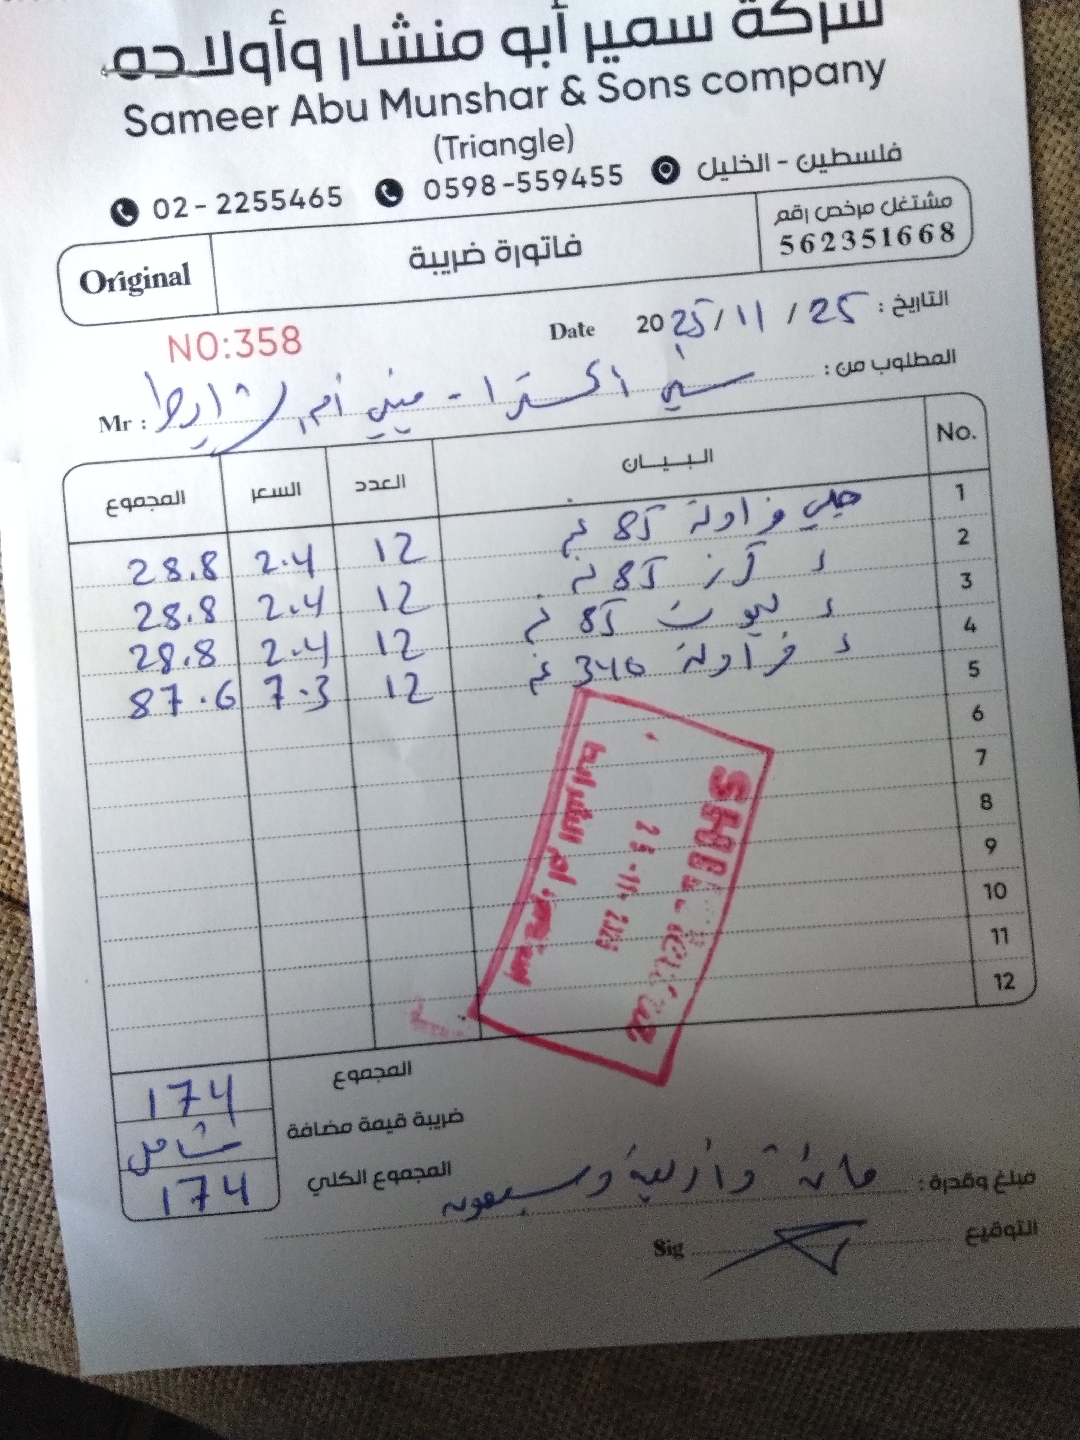 شركة سمير أبو منشار وأولاده
Sameer Abu Munshar & Sons company
(Triangle)
02-2255465 0598-559455 فلسطين - الخليل
Original فاتورة ضريبة مشتغل مرخص رقم
562351668
NO:358 Date 2025/11/25 التاريخ :
المطلوب من :
Mr : اكسترا - ميني أم الشرايط
No. البيان العدد السعر المجموع
1 جلي فراولة 85 غ 12 2.4 28.8
2 د كرز 85 غ 12 2.4 28.8
3 د توت 85 غ 12 2.4 28.8
4 د فراولة 340 غ 12 7.3 87.6
5
6
7
8
9
10
11
12
SHINI
25-11-2025
أم الشرايط
المجموع 174
ضريبة قيمة مضافة شامل
المجموع الكلي 174
مبلغ وقدرة : مائة وأربعة وسبعون
التوقيع Sig